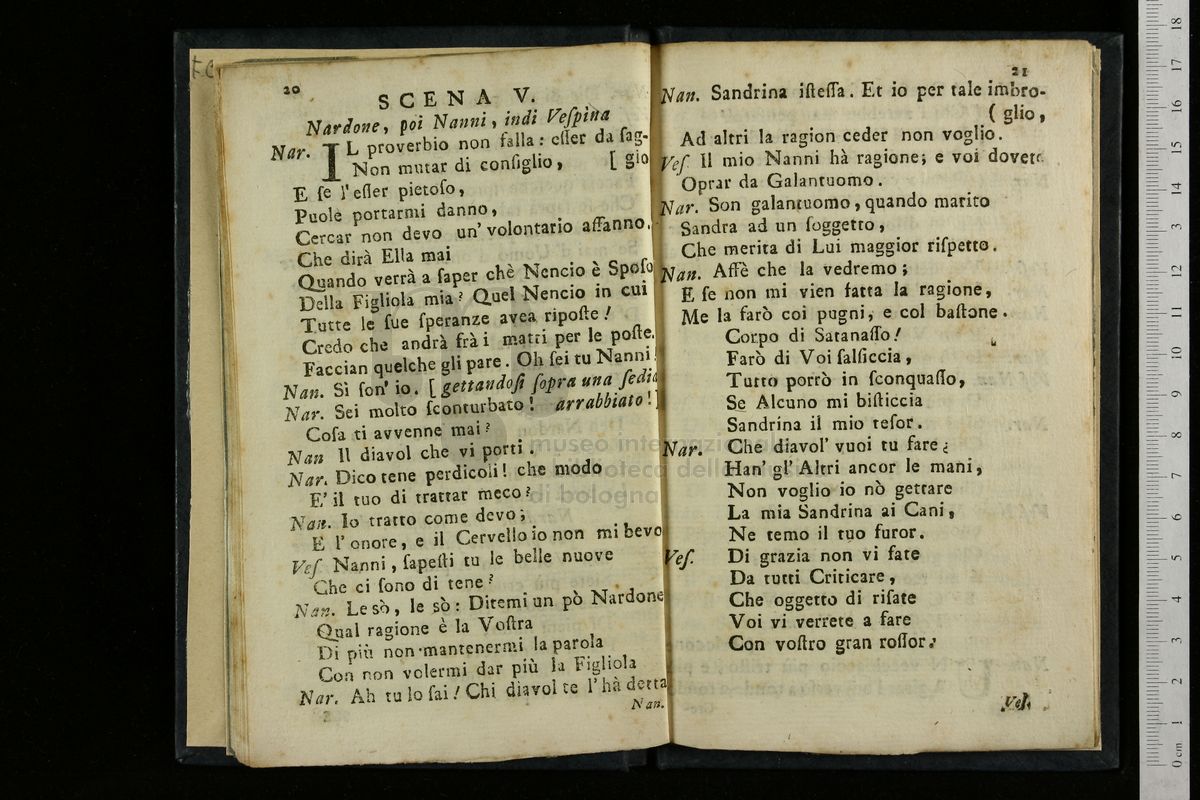 20
SCENA V.
Nardone, poi Nanni, indi Veſpina
Nar. IL proverbio non falla: eſſer da ſag-
Non mutar di conſiglio, [ gio
E ſe l'eſſer pietoſo,
Puole portarmi danno,
Cercar non devo un' volontario affanno.
Che dirà Ella mai
Quando verrà a ſaper chè Nencio è Spoſo
Della Figliola mia? Quel Nencio in cui
Tutte le ſue ſperanze avea ripoſte!
Credo che andrà frà i matti per le poſte.
Faccian quelche gli pare. Oh ſei tu Nanni!
Nan. Sì ſon' io. [ gettandoſi ſopra una ſedia
Nar. Sei molto ſconturbato! arrabbiato!]
Coſa ti avvenne mai?
Nan Il diavol che vi porti.
Nar. Dico tene perdicoli! che modo
E' il tuo di trattar meco?
Nan. Io tratto come devo;
E l'onore, e il Cervello io non mi bevo
Veſ Nanni, ſapeſti tu le belle nuove
Che ci ſono di tene?
Nan. Le sò, le sò: Ditemi un pò Nardone
Qual ragione è la Voſtra
Di più non mantenermi la parola
Con non volermi dar più la Figliola
Nar. Ah tu lo ſai! Chi diavol te l'hà detta
Nan.
21
Nan. Sandrina iſteſſa. Et io per tale imbro-
( glio,
Ad altri la ragion ceder non voglio.
Veſ. Il mio Nanni hà ragione; e voi dovete
Oprar da Galantuomo.
Nar. Son galantuomo, quando marito
Sandra ad un ſoggetto,
Che merita di Lui maggior riſpetto.
Nan. Affè che la vedremo;
E ſe non mi vien fatta la ragione,
Me la farò coi pugni, e col baſtone.
Corpo di Satanaſſo!
Farò di Voi ſalſiccia,
Tutto porrò in ſconquaſſo,
Se Alcuno mi biſticcia
Sandrina il mio teſor.
Nar. Che diavol' vuoi tu fare?
Han' gl' Altri ancor le mani,
Non voglio io nò gettare
La mia Sandrina ai Cani,
Ne temo il tuo furor.
Veſ. Di grazia non vi fate
Da tutti Criticare,
Che oggetto di riſate
Voi vi verrete a fare
Con voſtro gran roſſor.
Veſ.
museo internazionale
e biblioteca della musica
di bologna
0 cm 1 2 3 4 5 6 7 8 9 10 11 12 13 14 15 16 17 18